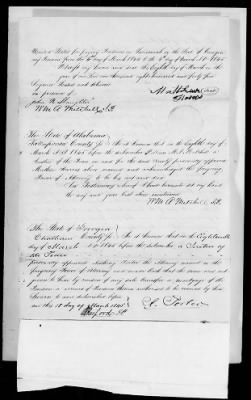 United States for paying Pensions in Savannah in the State of Georgia
my Pension from the 4th day of March 1844 to the 4th day of March 1845
Witness my hand and seal this Eighth day of March in
the year of our Lord one thousand eight hundred and forty five
Signed Sealed and
in presence of
Wm A Mitchell J.P.
The State of Alabama
County Be it known that on the Eighth day of
March 1845 before the subscriber William A Mitchell a
Justice of the Peace in and for the said County personally appeared
above named and acknowledged the foregoing
Power of Attorney to be his act and deed
In Testimony whereof I have hereunto set my hand
the day and year last above mentioned
Wm A Mitchell J.P.
The State of Georgia
Chatham County Be it known that on the Eighteenth
day of March 1845 before the subscriber a Justice of
the Peace
personally appeared Anthony Porter the Attorney named in the
foregoing Power of Attorney and made oath that the same was not
given to him by reason of any sale transfer or mortgage of the
Pension or arrears of Pension therein authorized to be received by him
Sworn to and subscribed before
me this 18 day of March 1845
A. Porter
J.P.